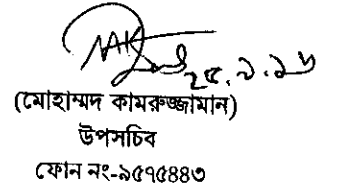 ২৫.৯.১৬
(মোহাম্মদ কামরুজ্জামান)
উপসচিব
ফোন নং-৯৫৭৫৪৪৩